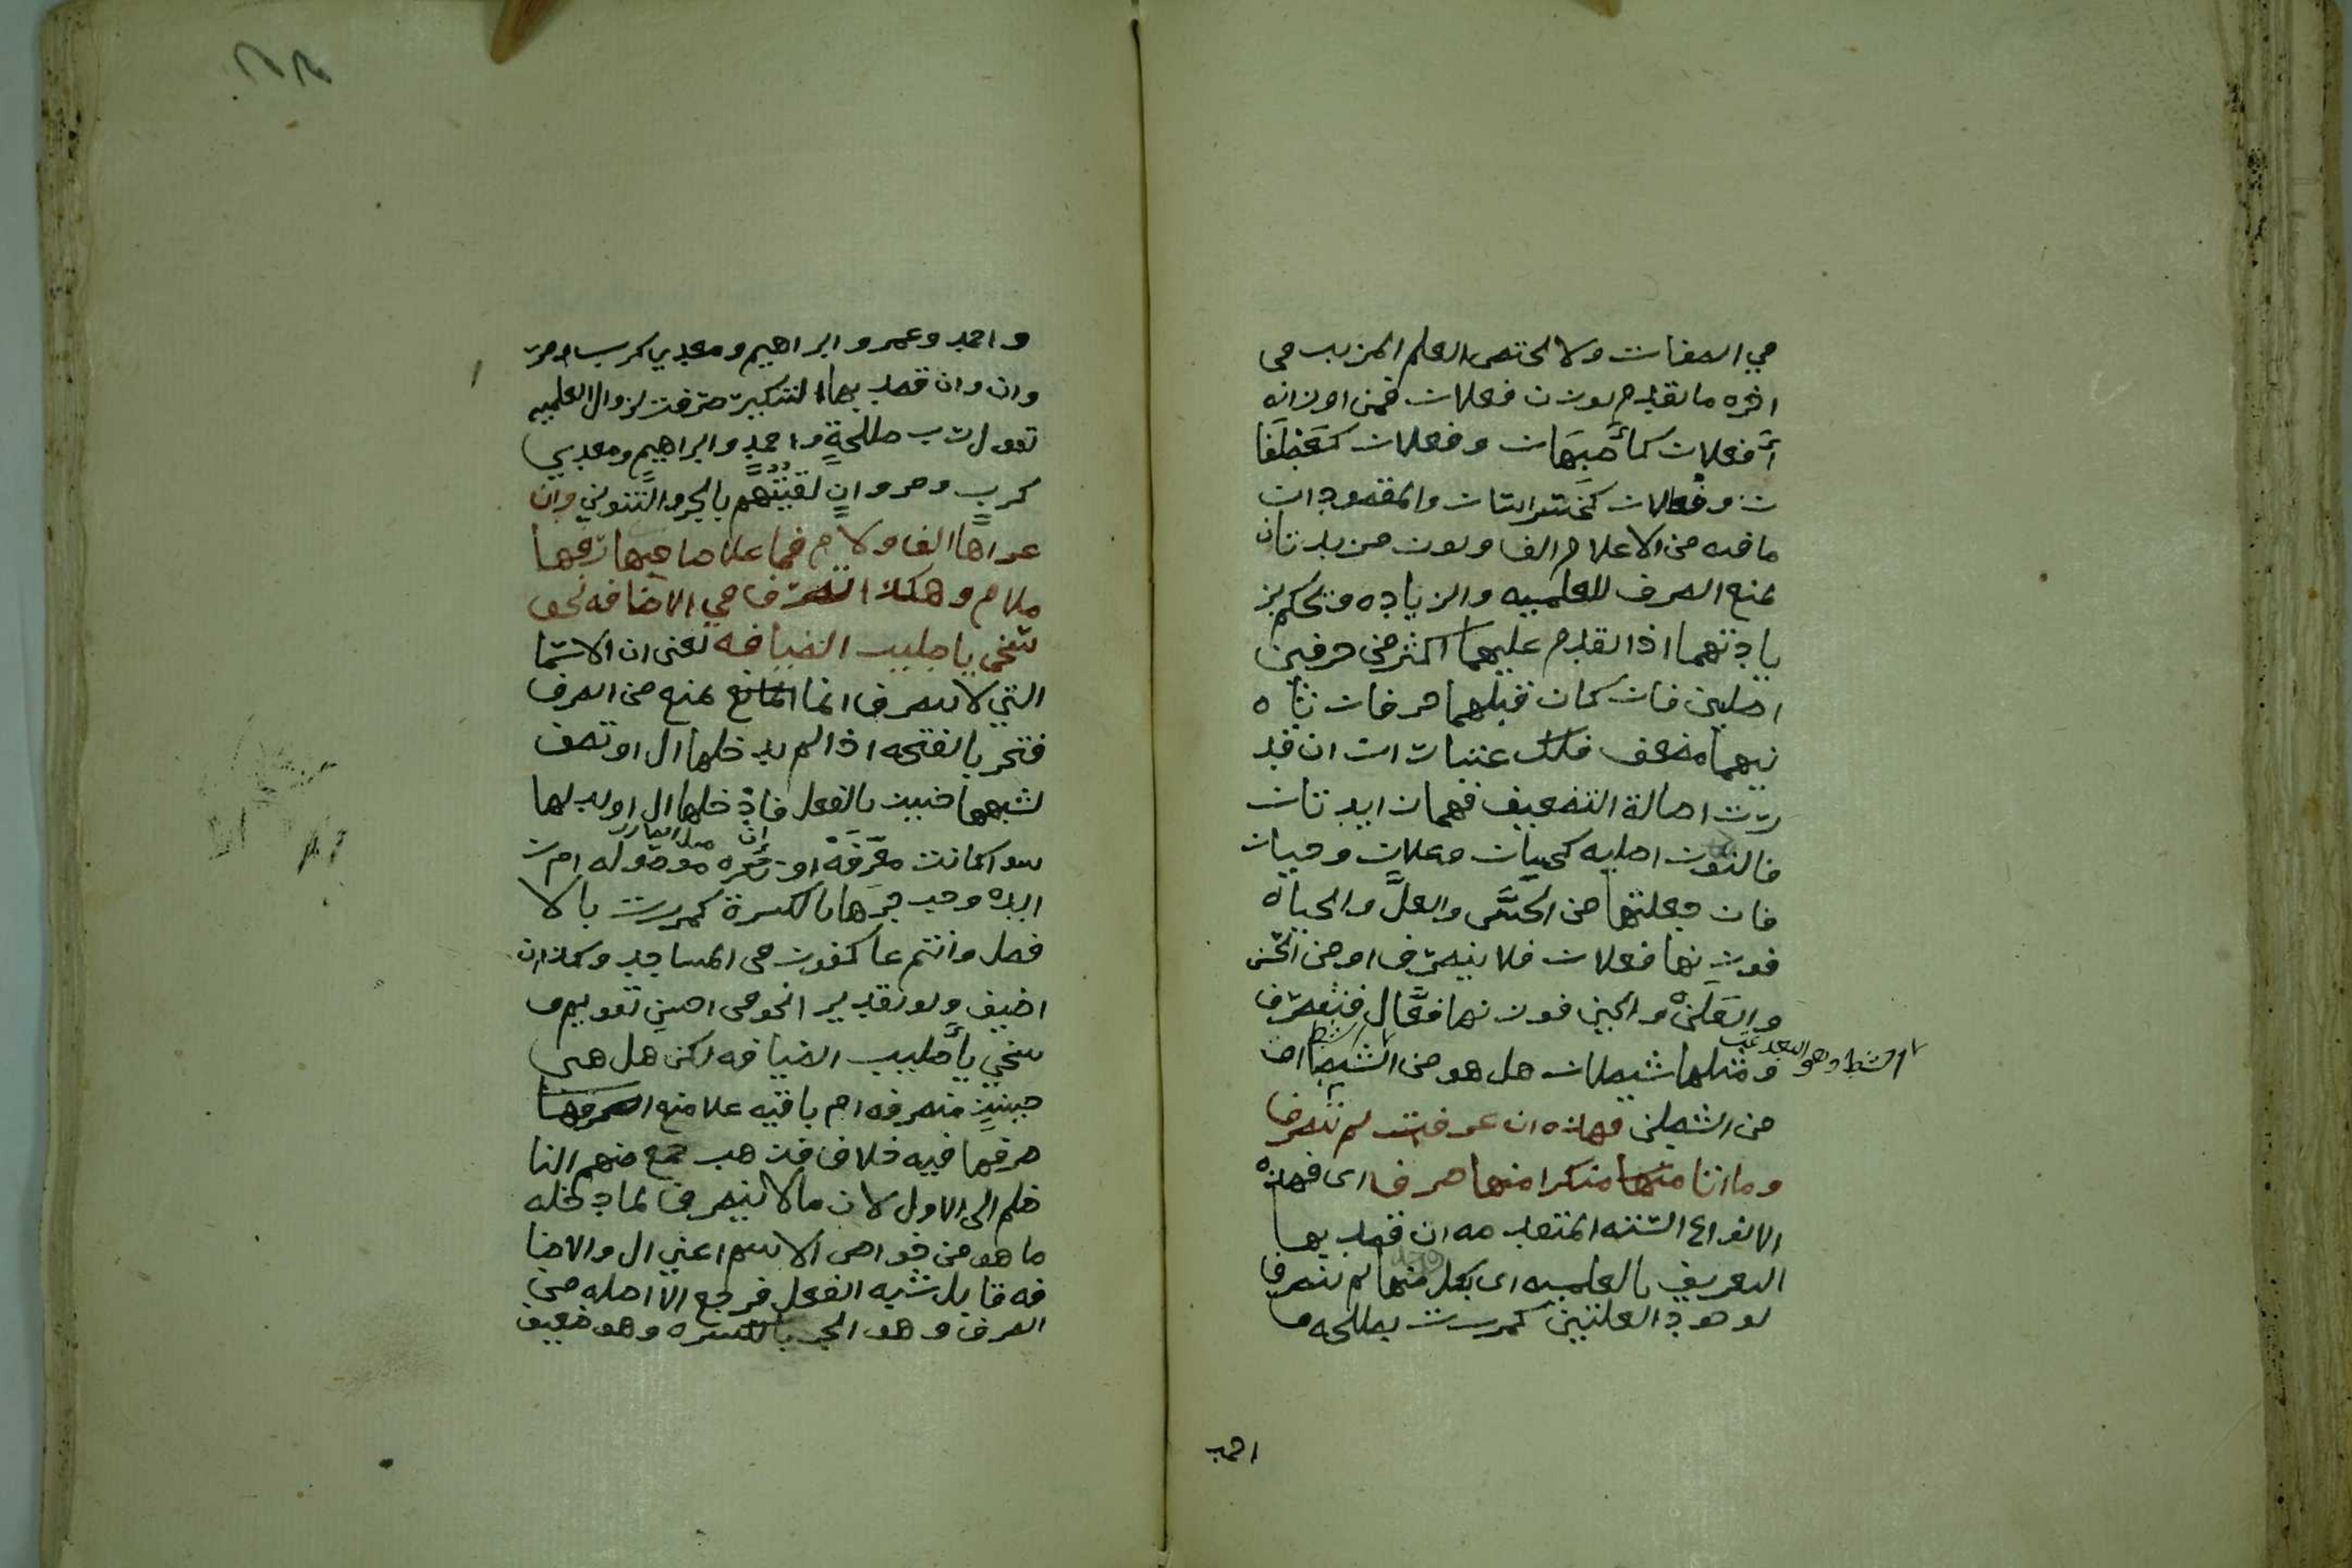 في الصفات ولا يختص العلم المزيد في
اخره ما تقدم بوزن فعلان فمن اوزانه
أفعلان كأصبهان وفعلان كغطفا
ن وفعلان كخراسان والمقصود ان
ما فيه من الاعلام الف ونون مزيدتان
يمنع الصرف للعلميه والزياده ونحكم بز
يادتهما اذا تقدم عليهما اكثر من حرفين
اصليين فان كان قبلهما حرفان ثا
نيهما مضعف فلك عتباران ان قد
رت اصالة التضعيف فهما زايدتان
فالنون اصليه كحسان وعلان وحيان
فان جعلتها من الحس والعل والحياه
فوزنها فعلان فلا ينصرف او من الحسن
والعلن والحين فوزنها فعال فينصرف
ومثلها شيطان هل هو من الشيط او
الشط وهو البعد
من الشطن فهذه ان عرفت لم تنصرف
وما اتا منكرا منها صرف اى فهذه
الانواع الستة المتقدمه ان قصد بها
التعريف بالعلميه اى بكل منها لم تنصرف
لوجود العلتين كمررت بطلحه و
احمد
واحمد وعمر وابراهيم ومعدي كرب ومر
وان وان قصد بها التنكير صرفت لزوال العلميه
تقول رب طلحةٍ واحمدٍ وابراهيمٍ ومعدي
كربٍ ومروانٍ لقيتهم بالجر والتنوين وان
عراها الف ولام فما على صاحبها
ملام وهكذا التصرف في الاضافه نحو
سخي باطيب الضيافه يعنى ان الاسما
التي لا تنصرف انما تمنع من الصرف
فتجر بالفتحه اذا لم يدخلها ال او تضف
لشبهها حينيذ بالفعل فان دخلها ال او بدلها
سوا كانت معرفة او موصوله ام ز
ايده وجب جرها بالكسرة كمررت بالا
فضل وانتم عاكفون في المساجد وكذا ان
اضيف ولو تقدير انحو في احسن تقويم و
سخي بأطيب الضيافه لكن هل هي
حينيذ منصرفه ام باقيه على منع صرفها
صرفها فيه خلاف فذهب جمع منهم النا
ظم الى الاول لان ما لا ينصرف لما دخله
ما هو من خواص الاسم اعني ال والاضا
فه قابل شبه الفعل فرجع الى اصله من
الصرف وهو الجر بالكسره وهو ضعيف